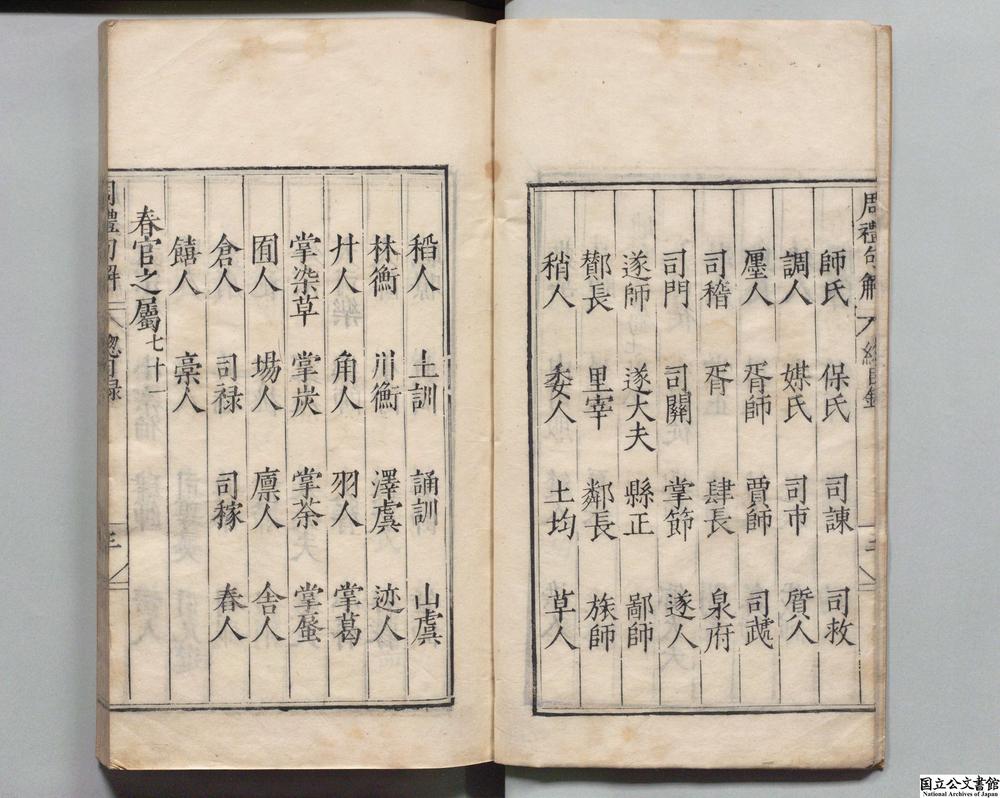 周禮句解 總目錄
師氏 保氏 司諫 司救
調人 媒氏 司市 質人
廛人 胥師 賈師 司虣
司稽 胥 肆長 泉府
司門 司關 掌節 遂人
遂師 遂大夫 縣正 鄙師
酇長 里宰 鄰長 族師
稍人 委人 土均 草人
稻人 土訓 誦訓 山虞
林衡 川衡 澤虞 迹人
廾人 角人 羽人 掌葛
掌染草 掌炭 掌荼 掌蜃
囿人 場人 廩人 舎人
倉人 司禄 司稼 舂人
饎人 稾人
春官之屬七十一
周禮句解 總目録 三
国立公文書館
National Archives of Japan